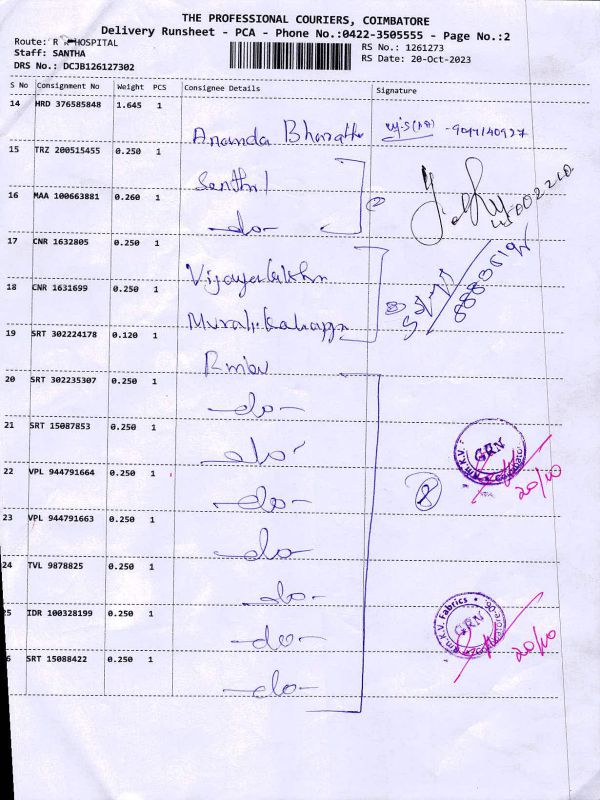 THE PROFESSIONAL COURIERS, COIMBATORE
Delivery Runsheet - PCA - Phone No.:0422-3505555 - Page No.:2
Route: R HOSPITAL
Staff: SANTHA
DRS No.: DCJB126127302
RS No.: 1261273
RS Date: 20-Oct-2023
S No Consignment No Weight PCS Consignee Details Signature
14 HRD 376585848 1.645 1
Ananda Bharath
15 TRZ 200515455 0.250 1
Senthil
16 MAA 100663881 0.260 1
-do-
2
17 CNR 1632805 0.250 1
Vijayalakshmi
18 CNR 1631699 0.250 1
Murali
19 SRT 302224178 0.120 1
Rmkv
20 SRT 302235307 0.250 1
-do-
21 SRT 15087853 0.250 1
-do-
GRN
20/10
22 VPL 944791664 0.250 1
-do-
8
23 VPL 944791663 0.250 1
-do-
24 TVL 9878825 0.250 1
-do-
25 IDR 100328199 0.250 1
-do-
Rm.K.V. Fabrics
GRN
20/10
6 SRT 15088422 0.250 1
-do-